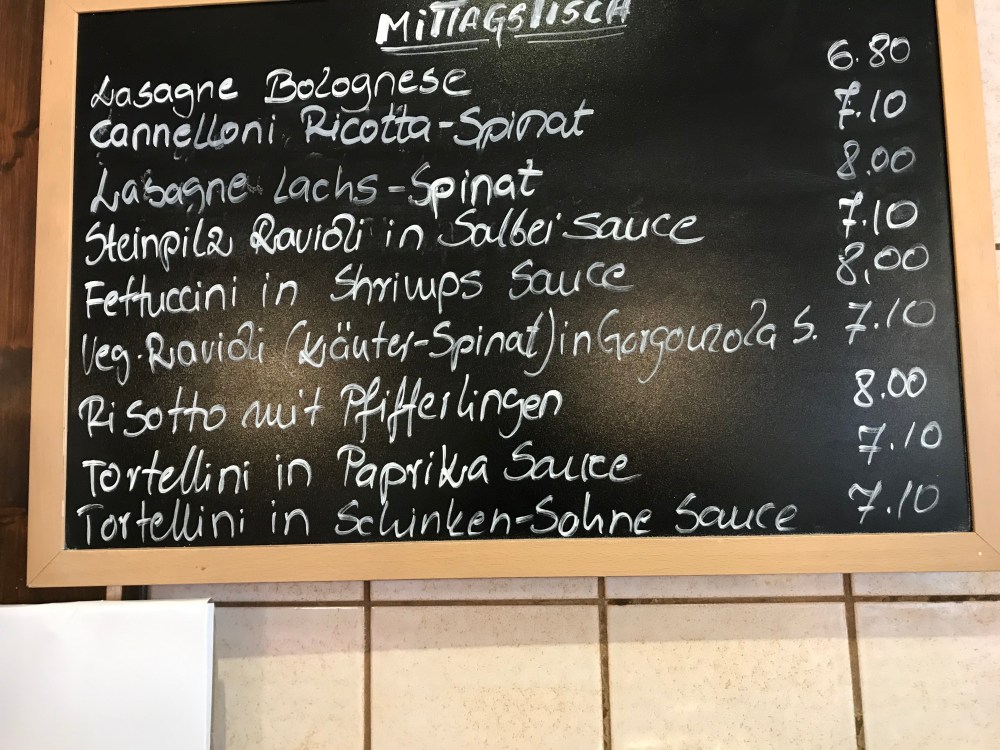 MITTAGSTISCH
Lasagne Bolognese 6.80
Cannelloni Ricotta-Spinat 7.10
Lasagne Lachs-Spinat 8.00
Steinpilz Ravioli in Salbei Sauce 7.10
Fettuccini in Shrimps Sauce 8,00
Veg. Ravioli (Kräuter-Spinat) in Gorgonzola S. 7.10
Risotto mit Pfifferlingen 8.00
Tortellini in Paprika Sauce 7.10
Tortellini in Schinken-Sahne Sauce 7.10